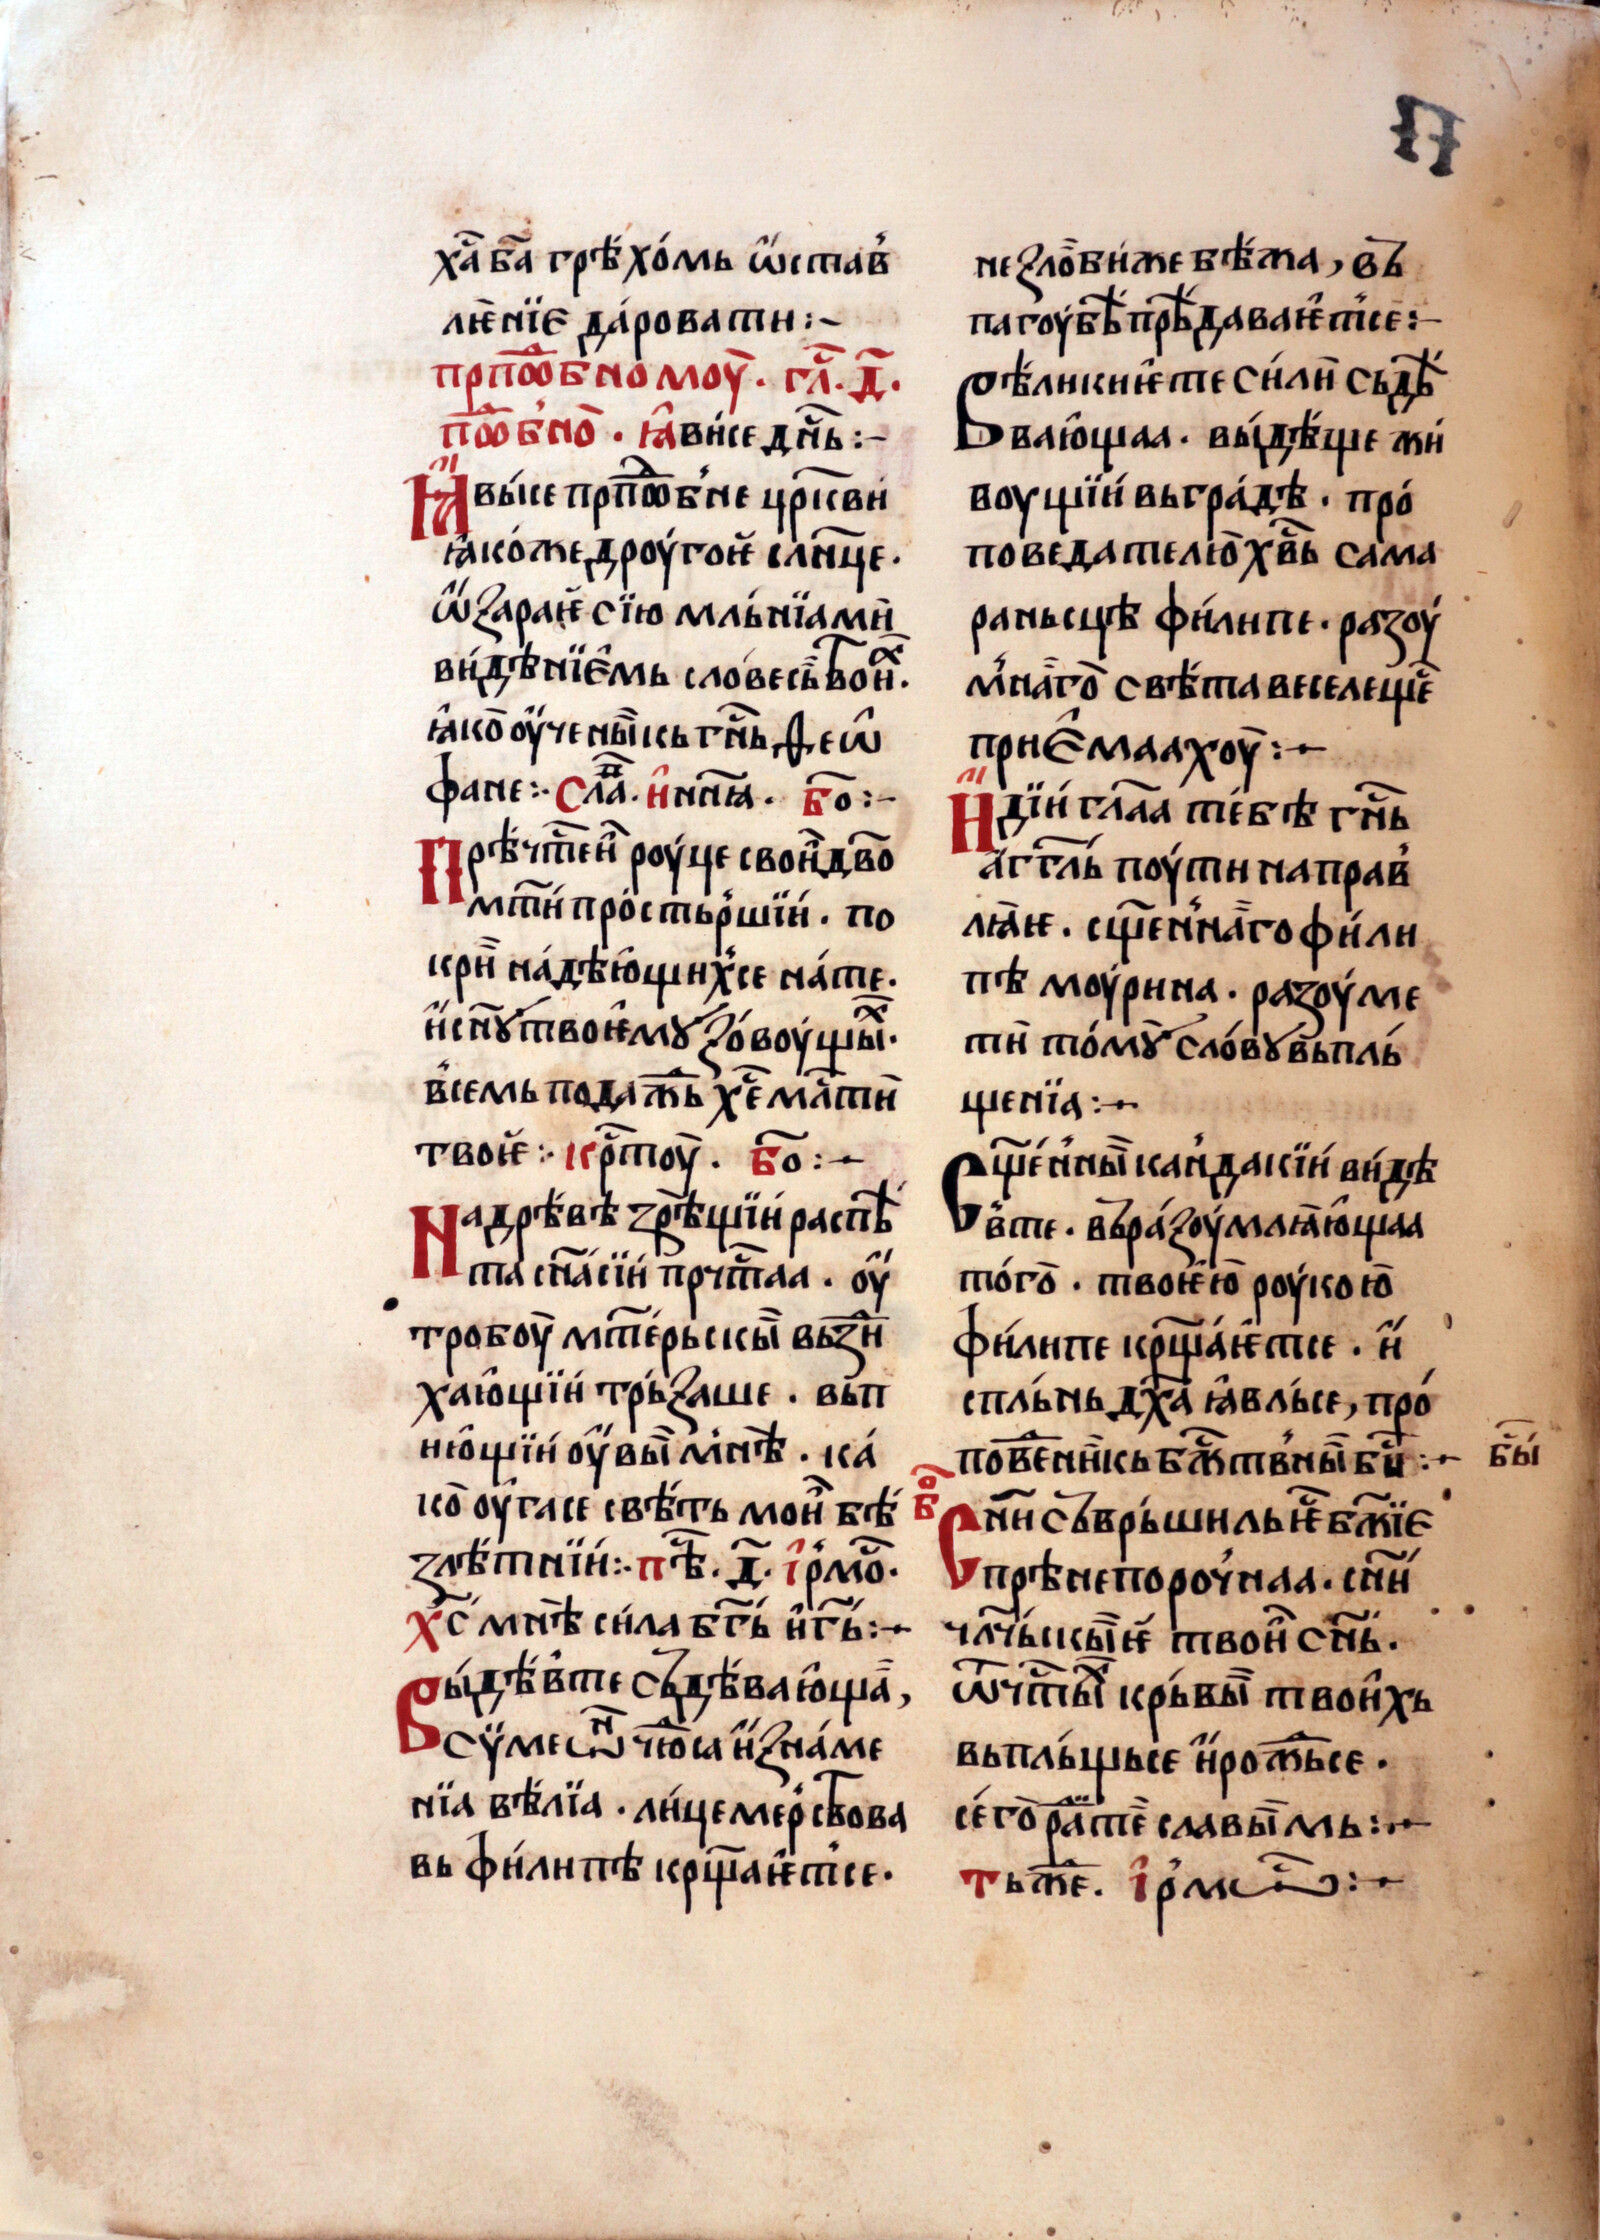 П
ха҃ ба҃ грѣхо́мь ѡ҆став
лѥ́нїе да́ровати :~
прпⷣобномоу҃ . гла҃ . д҃ .
поⷣбно . ꙗ҆ви́се дн҃ь :~
Ꙗ҆вы́се прпⷣобне цр҃кви
ꙗ҆ко́же дроу́гоѥ слнц҃е .
ѡ҆зараѥ сїю мль́нїами
ви́дѣнїемь слове́сь твои́ⷯ .
ꙗ҆ко оу҆чены́икь гн҃ь Ѳеѡ҆
фане :· слаⷡ҇ . и҆ нн҃ꙗ . бо҃ :~
Прѣчтⷭеи роу́це свои́ дв҃о
мт҃и про́стьршїи . по
кри на́дѣю҆щиⷯ се на́те .
и҆ сн҃ꙋ твоѥмꙋ зо́воу́щыⷯ .
в́семь подажⷣь хе҃ млⷭти
твоѥ :· крⷭтоу҃ . бо҃ :~
На дрѣ́вѣ зрѣщїи распѣ
та спа҃сїи прчⷭтаа . оу҆
тробоу мт҃е́рьскы вьзⷣи
хаю҆щїи трь́заше . вьп
ию҆щїи оу҆вы мⷩ́нѣ . ка́
ко оу҆гасе свѣ́ть мои бѣ
злѣ́тнїи :· пѣⷭ . д҃ . і҆рмоⷭ .
хⷭ мⷩнѣ си́ла бг҃ь и҆ г҃ь :~
Вы́дѣв́те сьдѣ́ваю҆ща ,
сѷмеѡⷩ чюⷣса и҆ зна́ме
нїа вѣ́лїа . ли́цемер́ствова
вь фи́липѣ крщ҃аѥ҆тсе .
незло́виже бѣ́жа , вь
пагоу́бѣ прѣ́даваѥ҆тсе :~
Вѣ́ликиѥ҆те си́ли сьдѣ
ваю҆щаа . вы́дѣще жи
воущїи вь гра́дѣ . про́
поведателю хв҃ь сама
раньсцѣ фи́липе . разоу́
м́наго свѣ́та веселеще
приѥ҆мааⷯхоу :~
И҆дїи гла҃а те́бѣ гн҃ь
а҆гг҃ль поу́ти направ́
лꙗѥ . сщ҃ен́наго фи́ли
пѣ моу́рина . разоу́ме
ти то́мꙋ сло́вꙋ вьпль́
щенїа :~
Сщ҃е́н́ны кан́дакїи ви́дѣ
в́те . вьра́зоу́млꙗю҆щаа
то́го . твоѥ҆ю роу́кою
фи́липе крщ҃а́ѥ҆тсе . и҆
спль́нь дх҃а ꙗ҆вль́се , про́
повѣⷣни́кь бжⷭтв́ны бы́ :~ бы҃
бо҃
Сн҃и сьврьшильѥ҆ бж҃їе
прѣнепороч́наа . сн҃и́
члчⷭь́скыѥ твои сн҃ь .
ѿ чⷭты́ⷯ крь́вы твои҆хь
вьпль́щьсе и҆ рожⷣьсе .
се́го раⷣ те сла́вы́мь :~
тьжⷣе . і҆рмоⷭ :~